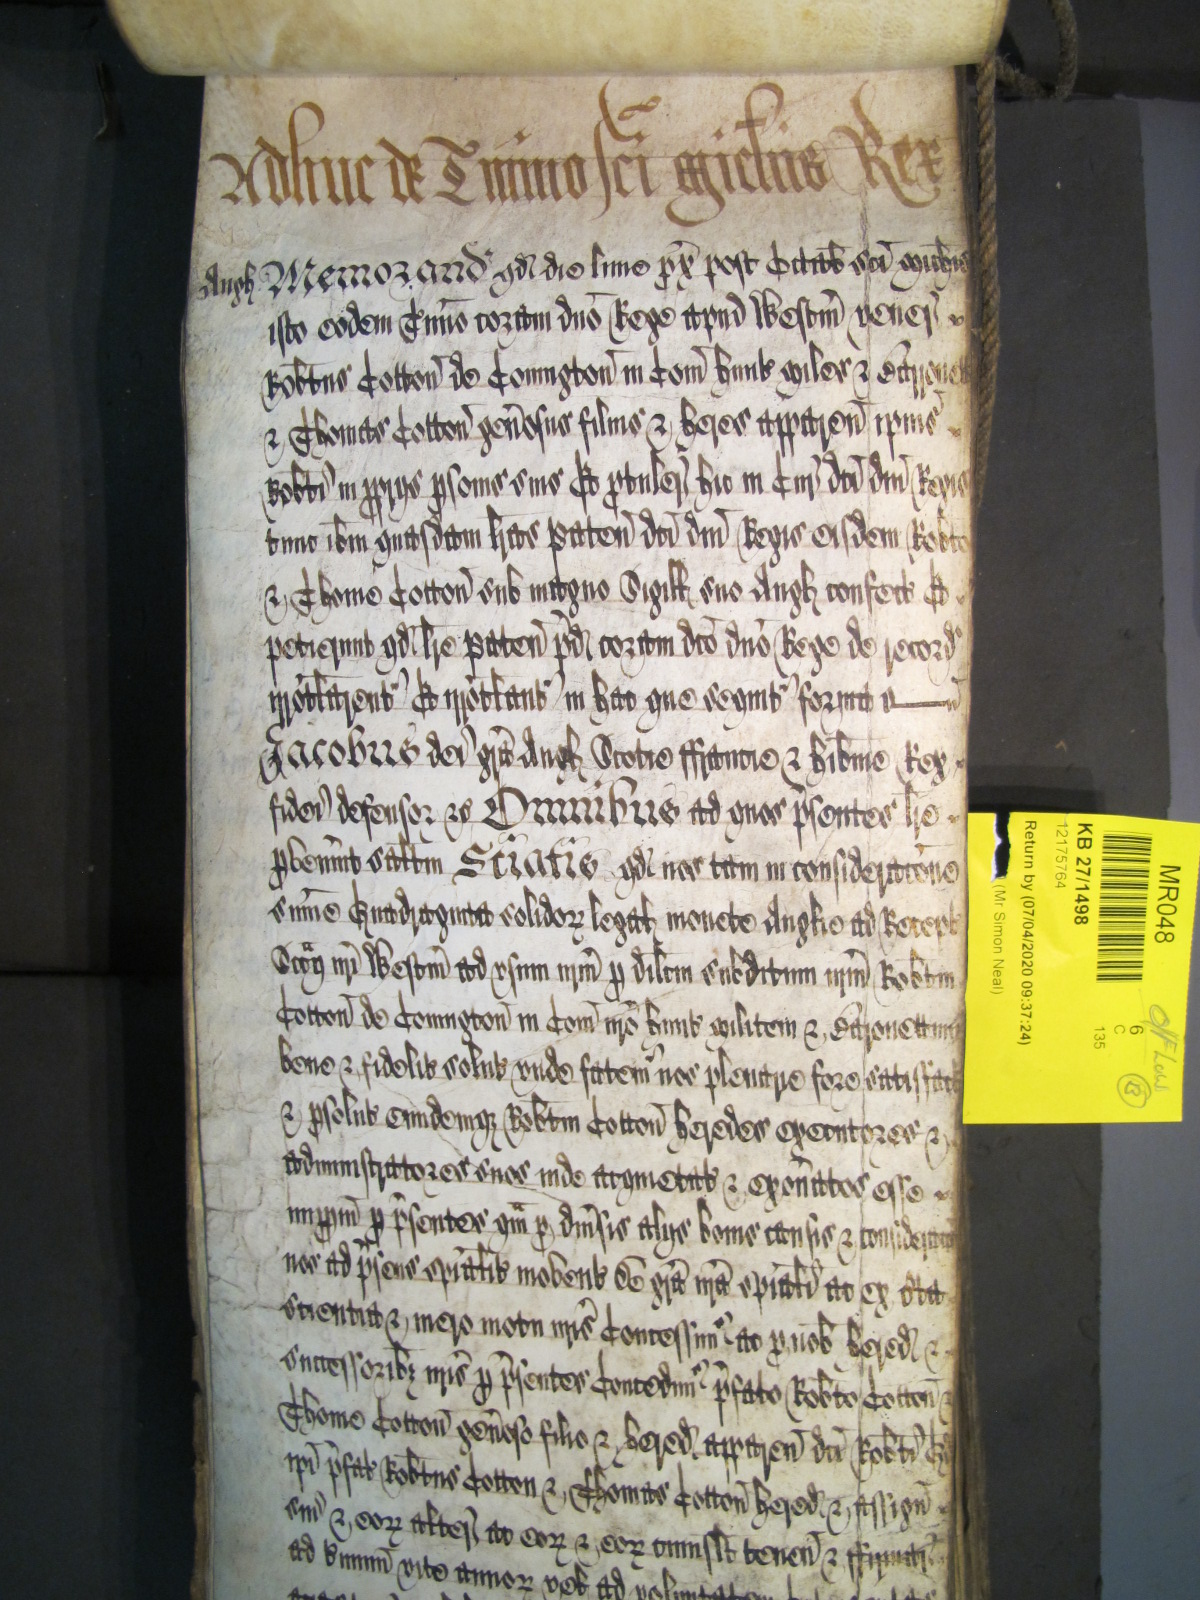 Adhuc de Tmino sci Michis Rex
Angl Memorand qd die lune px post Crastm sci Michis
isto eodem Tmino coram dno Rege apud Westm vener
Robtus Cotton de Conington in Com Hunt miles & Baronett
& Thomas Cotton genosus filius & heres apparen ipius
Robti in pprijs psonis suis Et ptuler hic in Cur dci dni Regis
tunc ibm quasdam lras paten dci dni Regis eisdem Robto
& Thome Cotton sub magno Sigill suo Angl confect Et
petierunt qd lre paten pd coram dco dno Rege de record
irrotlarent Et irrotlant in hac que sequit forma
Jacobus dei gra Angl Scotie ffrancie & Hibnie Rex
fidei defensor &c Omnibus ad quos psentes lre
pvenint saltm Sciatis qd nos tam in consideracone
sume Quadraginta solidor legal monete Anglie ad Recept
Sccij nri Westm ad usum nrm p dilcm subditum nrm Robtm
Cotton de Conington in Com nro Hunt militem & Baronettum
bene & fidelit solut unde fatem nos plenarie fore satisfact
& psolut eundemq Robtm Cotton heredes executores &
administratores suos inde acquietat & exonatos esse
imppm p psentes qm p divsis alijs bonis causis & consideracon
nos ad psens spialit movent De gra nra spiali ac ex cta
scientia & mero motu nris Concessim ac p nob hered &
successoribz nris p psentes Concedim pfato Robto Cotton &
Thome Cotton genoso filio & hered apparen dci Robti Qd
ipi pfat Robtus Cotton & Thomas Cotton hered & assign
sui & eor alter ac eor & eor cuiuslt tenen & ffirmar
ad tminu vite annor vel ad voluntatem
MR048
KB 27/1498
12175764
Return by (07/04/2020 09:37:24)
(Mr Simon Neal)
6
C
135
Off Low
13